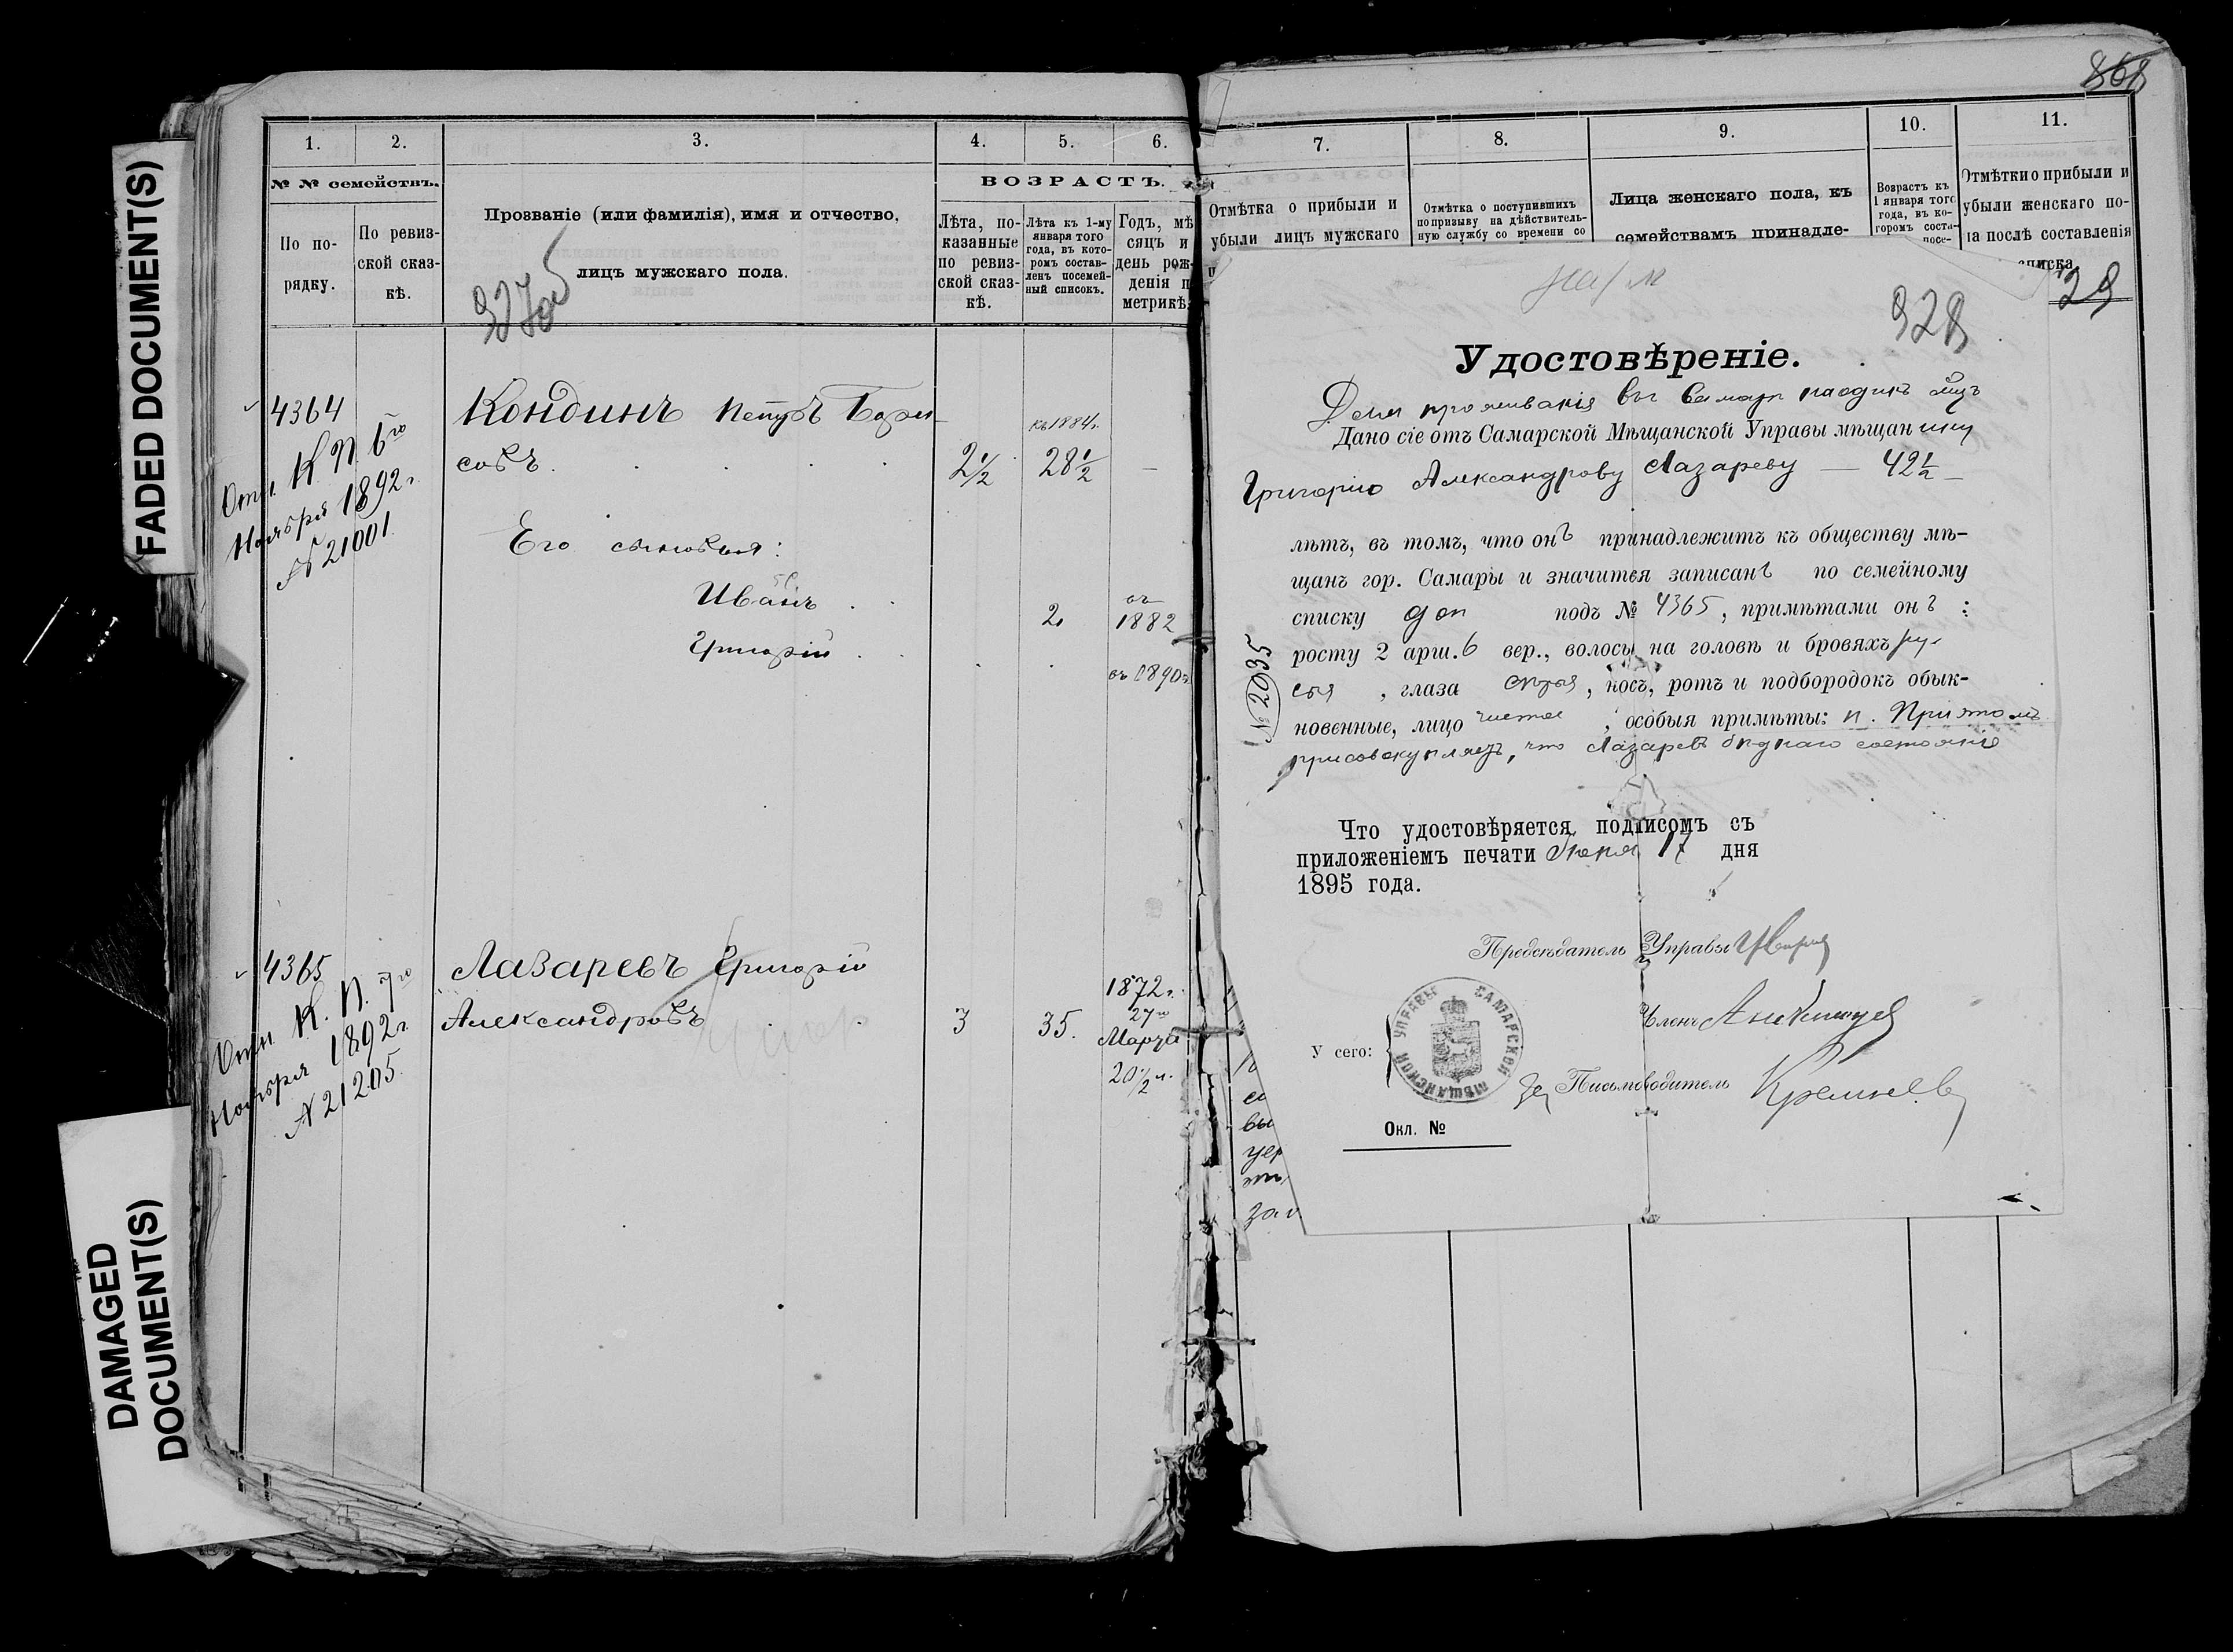 FADED DOCUMENT(S)
DAMAGED
DOCUMENT(S)
1. 2. 3. 4. 5. 6.
№ № семействъ.
По по-
рядку.
По ревиз-
ской сказ-
кѣ.
Прозваніе (или фамилія), имя и отчество,
лицъ мужскаго пола.
ВОЗРАСТЪ.
Лѣта, по-
казанные
по ревиз-
ской сказ-
кѣ.
Лѣта къ 1-му
января того
года, въ кото-
ромъ состав-
ленъ посемей-
ный списокъ.
Годъ, мѣ
сяцъ и
день рож-
денія п
метрикѣ.
4364
Отн. К. П. 6го
Ноября 1892 г.
№ 21001.
Кондинъ Петръ Бори-
совъ.
къ 1884 г.
2½ 28½ —
Его сыновья:
Иванъ
2. въ 1882
Григорій
въ 1890 г.
4365
Отн. К. П. 7го
Ноября 1892 г.
№ 21205.
Лазаревъ Григорій
Александровъ
3 35.
1872 г.
27го
Марта
20½ л.
868
7. 8. 9. 10. 11.
Отмѣтка о прибыли и
убыли лицъ мужскаго
Отмѣтка о поступившихъ
по призыву на дѣйствитель-
ную службу со времени со
Лица женскаго пола, къ
семействамъ принадле-
Возрастъ къ
1 января того
года, въ ко-
торомъ соста-
посе-
Отмѣтки о прибыли и
убыли женскаго по-
ла послѣ составленія
списка
29
928
Удостовѣреніе.
Для проживанія въ Самарѣ
Дано сіе отъ Самарской Мѣщанской Управы мѣщанину
Григорію Александрову Лазареву — 42½ —
лѣтъ, въ томъ, что онъ принадлежитъ къ обществу мѣ-
щанъ гор. Самары и значится записанъ по семейному
списку доп подъ № 4365, примѣтами онъ :
росту 2 арш. 6 вер., волосы на головѣ и бровяхъ ру-
сыя, глаза сѣрыя, носъ, ротъ и подбородокъ обык-
новенные, лицо чистое, особыя примѣты: н. При этомъ
присовокупляетъ, что Лазаревъ бѣднаго состоянія
№ 2035
Что удостовѣряется подписомъ съ
приложеніемъ печати 17 дня
1895 года.
Предсѣдатель Управы
Членъ
У сего:
САМАРСКОЙ МѢЩАНСКОЙ УПРАВЫ
Письмоводитель
Окл. №
вы
зап